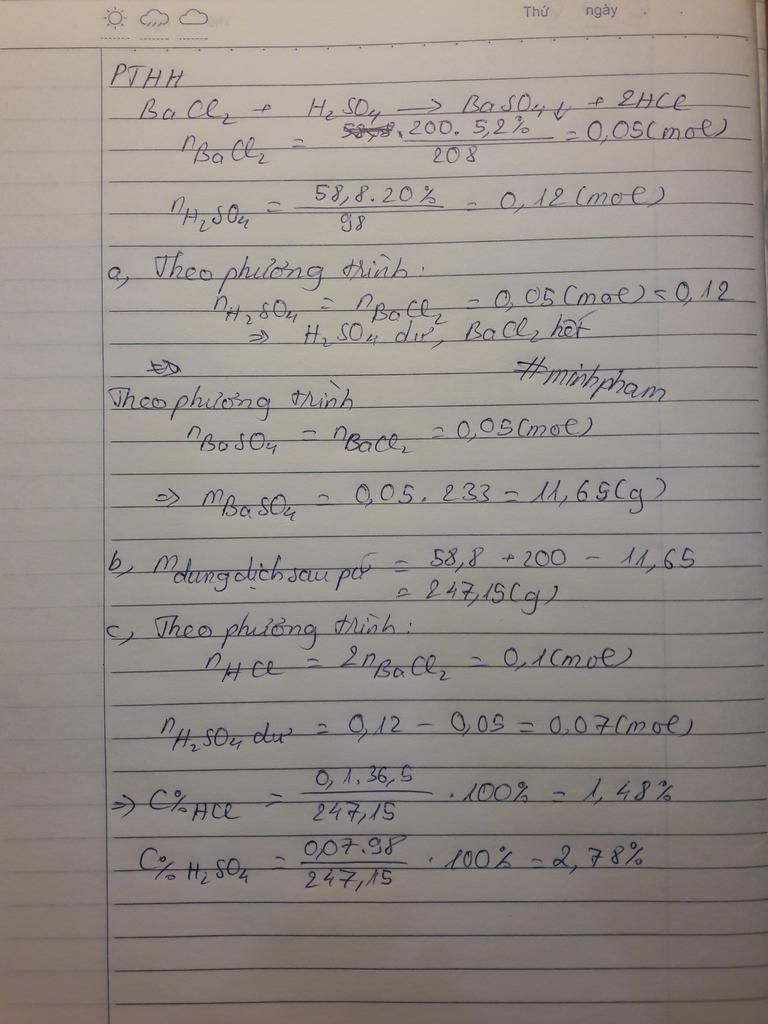 Thứ ngày
PTHH
BaCl₂ + H₂SO₄ → BaSO₄↓ + 2HCl
nBaCl₂ = 200. 5,2% / 208 = 0,05(mol)
nH₂SO₄ = 58,8.20% / 98 = 0,12(mol)
a, Theo phương trình:
nH₂SO₄ = nBaCl₂ = 0,05(mol) < 0,12
⇒ H₂SO₄ dư, BaCl₂ hết
#minhpham
Theo phương trình
nBaSO₄ = nBaCl₂ = 0,05(mol)
⇒ mBaSO₄ = 0,05. 233 = 11,65(g)
b, mdung dịch sau pứ = 58,8 + 200 - 11,65
= 247,15(g)
c, Theo phương trình:
nHCl = 2nBaCl₂ = 0,1(mol)
nH₂SO₄ dư = 0,12 - 0,05 = 0,07(mol)
⇒ C%HCl = 0,1.36,5 / 247,15 .100% = 1,48%
C%H₂SO₄ = 0,07.98 / 247,15 .100% = 2,78%